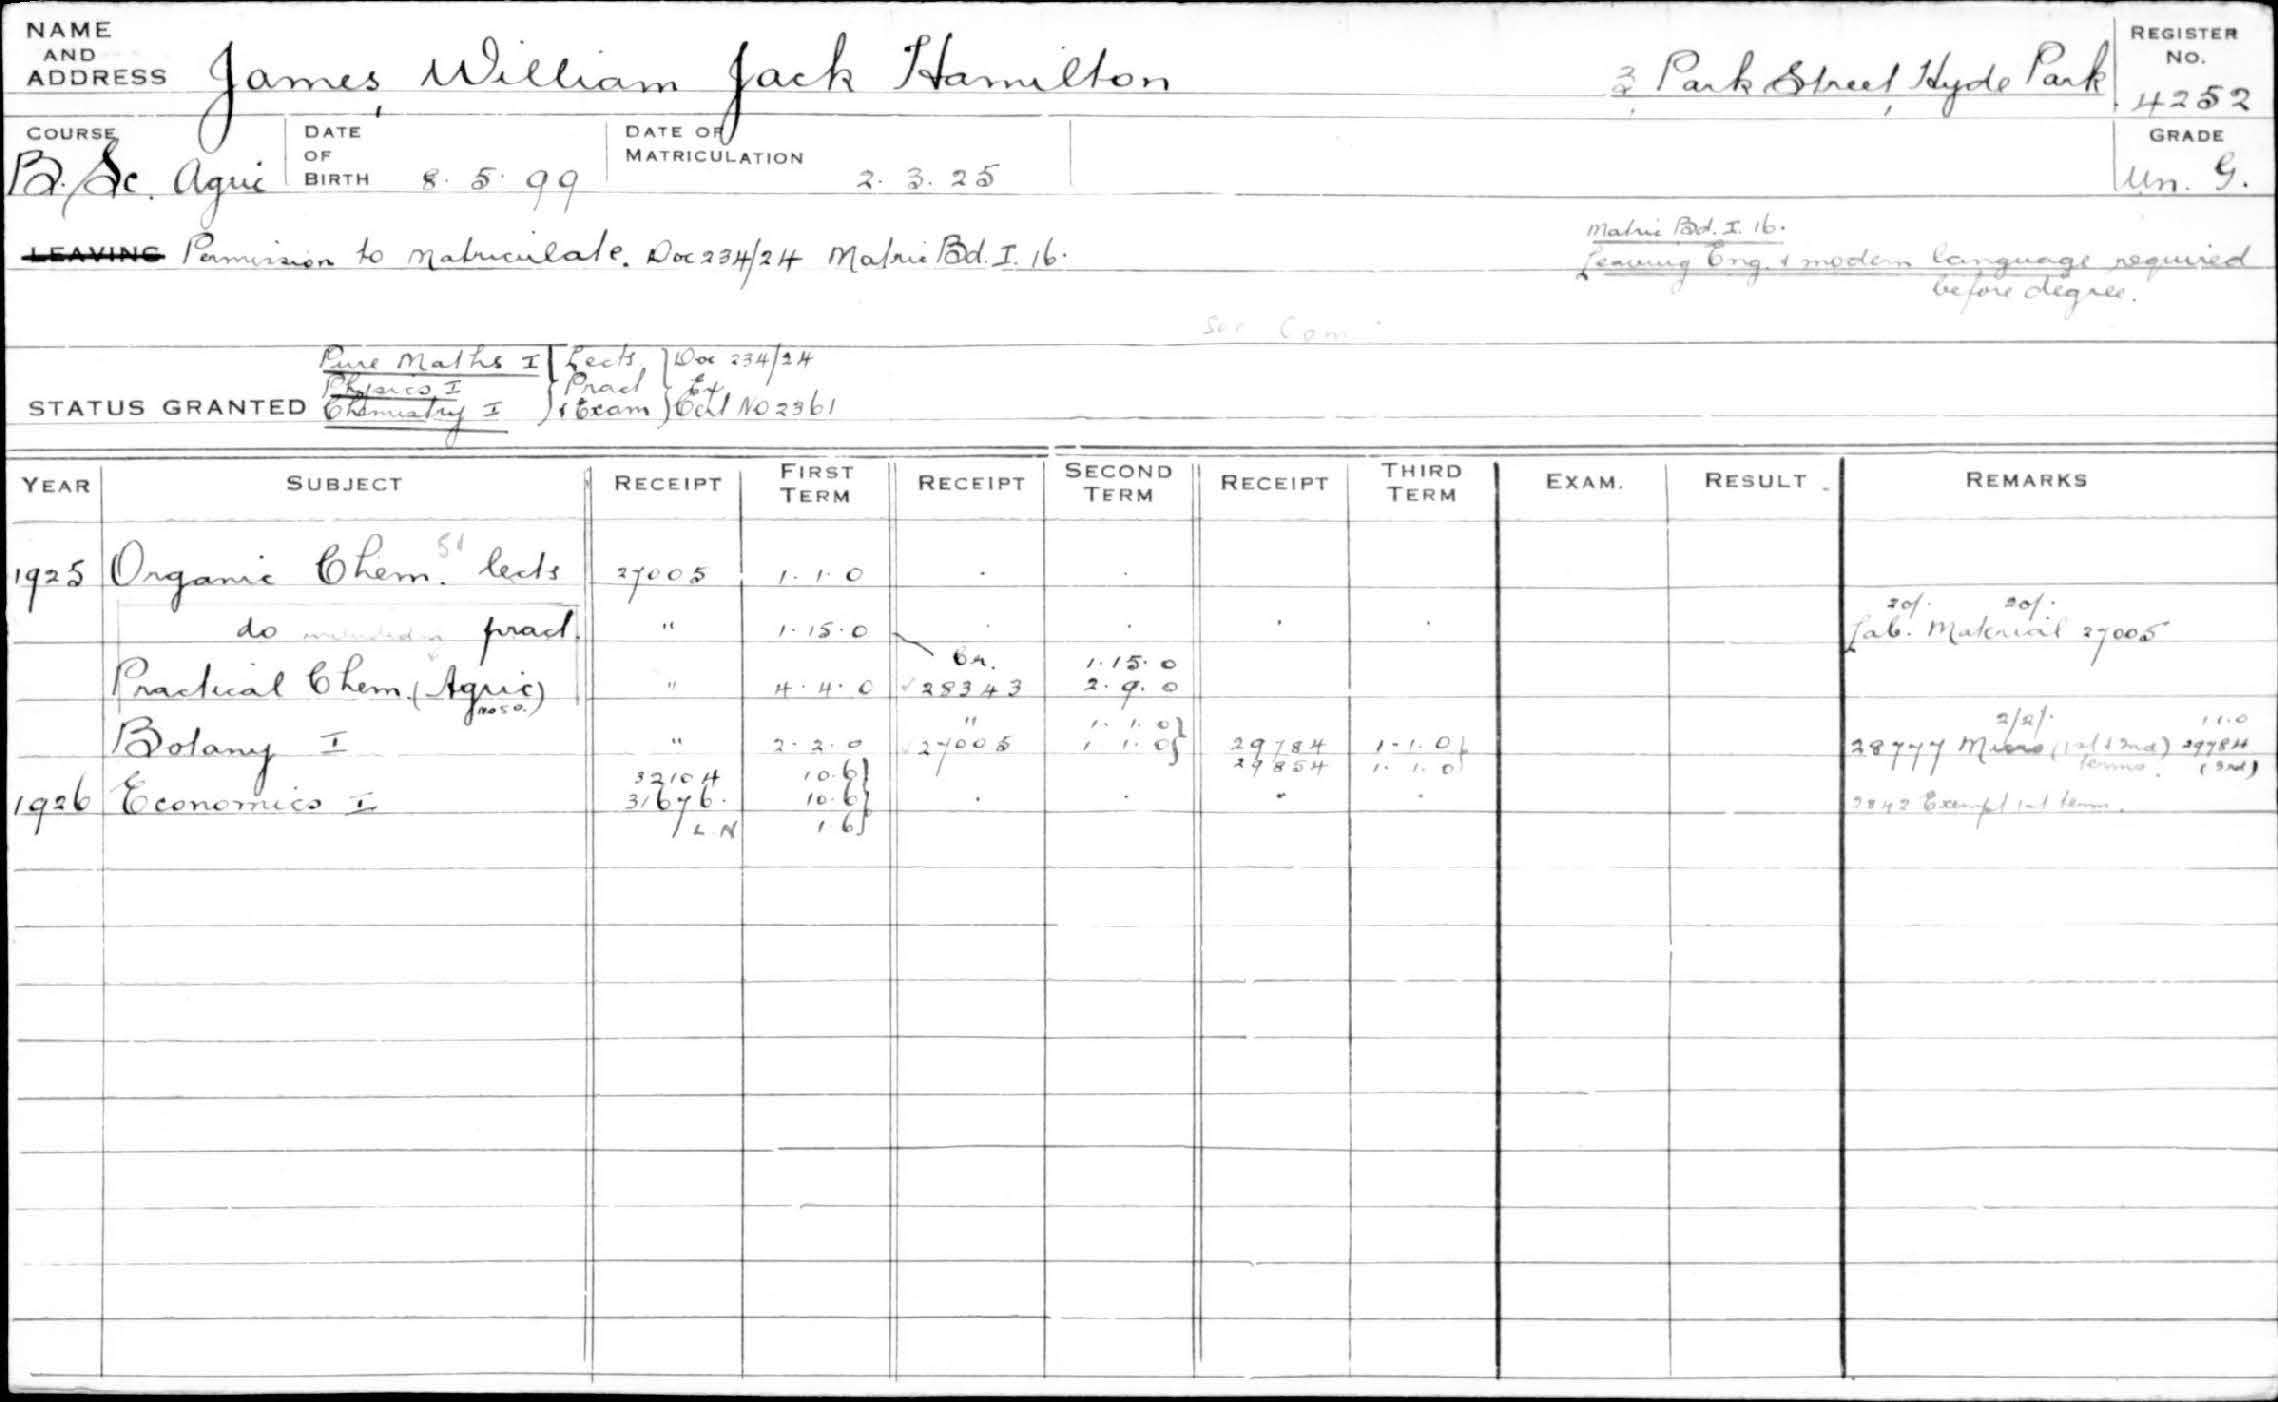 NAME AND ADDRESS James, William Jack Hamilton 3 Park Street, Hyde Park REGISTER NO. 4252
COURSE B.Sc. Agric DATE OF BIRTH 8. 5. 99 DATE OF MATRICULATION 2. 3. 25 GRADE Un. G.
Matric Bd. I. 16.
LEAVING Permission to matriculate. Doc 234/24 Matric Bd. I. 16. Leaving Eng. & modern language required
before degree.
See Com
Pure Maths I Lects, Doc 234/24
Physics I Pract Ex
STATUS GRANTED Chemistry I & Exam Cert No 2361
YEAR SUBJECT RECEIPT FIRST TERM RECEIPT SECOND TERM RECEIPT THIRD TERM EXAM. RESULT REMARKS
1925 Organic Chem. lects 27005 1. 1. 0
20/. 20/.
do pract. " 1. 15. 0 Lab. Material 27005
Cr. 1. 15. 0
Practical Chem. (Agric) " 4. 4. 0 28343 2. 9. 0
" 1. 1. 0 2/2/. 1 1.0
Botany I " 2. 2. 0 27005 1 1. 0 29784 1. 1. 0 28777 Micro (1st & 2nd) 29784
32104 10. 6 29854 1. 1. 0 terms. (3rd)
1926 Economics I 31676. 10. 6 2842 Exempt 1st term.
L. N 1. 6